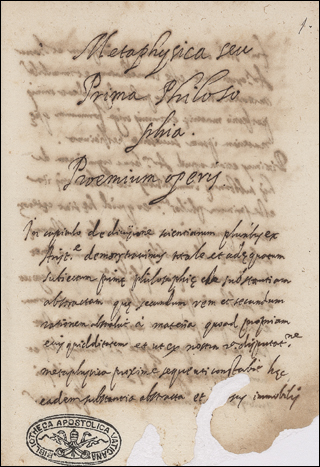 1.
Metaphysica seu
Prima Philoso
phia.
Proemium operis
In capitulo de divisione scientiarum pluribus ex
Arist.e demonstravimus totale et adequatum
subiectum prime philosophie esse substantiam
abstractam que secundum rem et secundum
rationem absoluta a materia quoad propriam
eius quidditatem et ut ex nostra disputat.ne
metaphysica proxime sequenti constabit hec
eadem substantia abstracta et immobilis
BIBLIOTHECA APOSTOLICA VATICANA